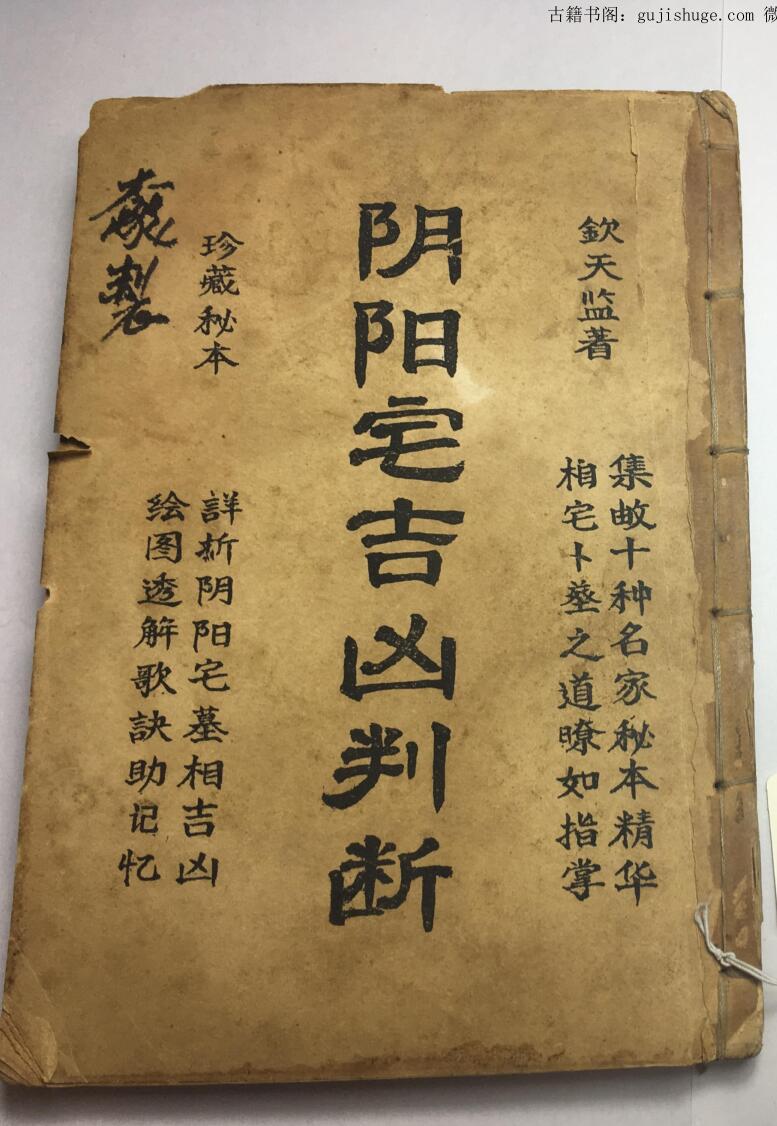 古籍书阁：gujishuge.com 微
欽天监著
集数十种名家秘本精华
相宅卜葬之道瞭如指掌
阴阳宅吉凶判断
珍藏秘本
詳析阴阳宅墓相吉凶
绘图透解歌訣助记忆
製